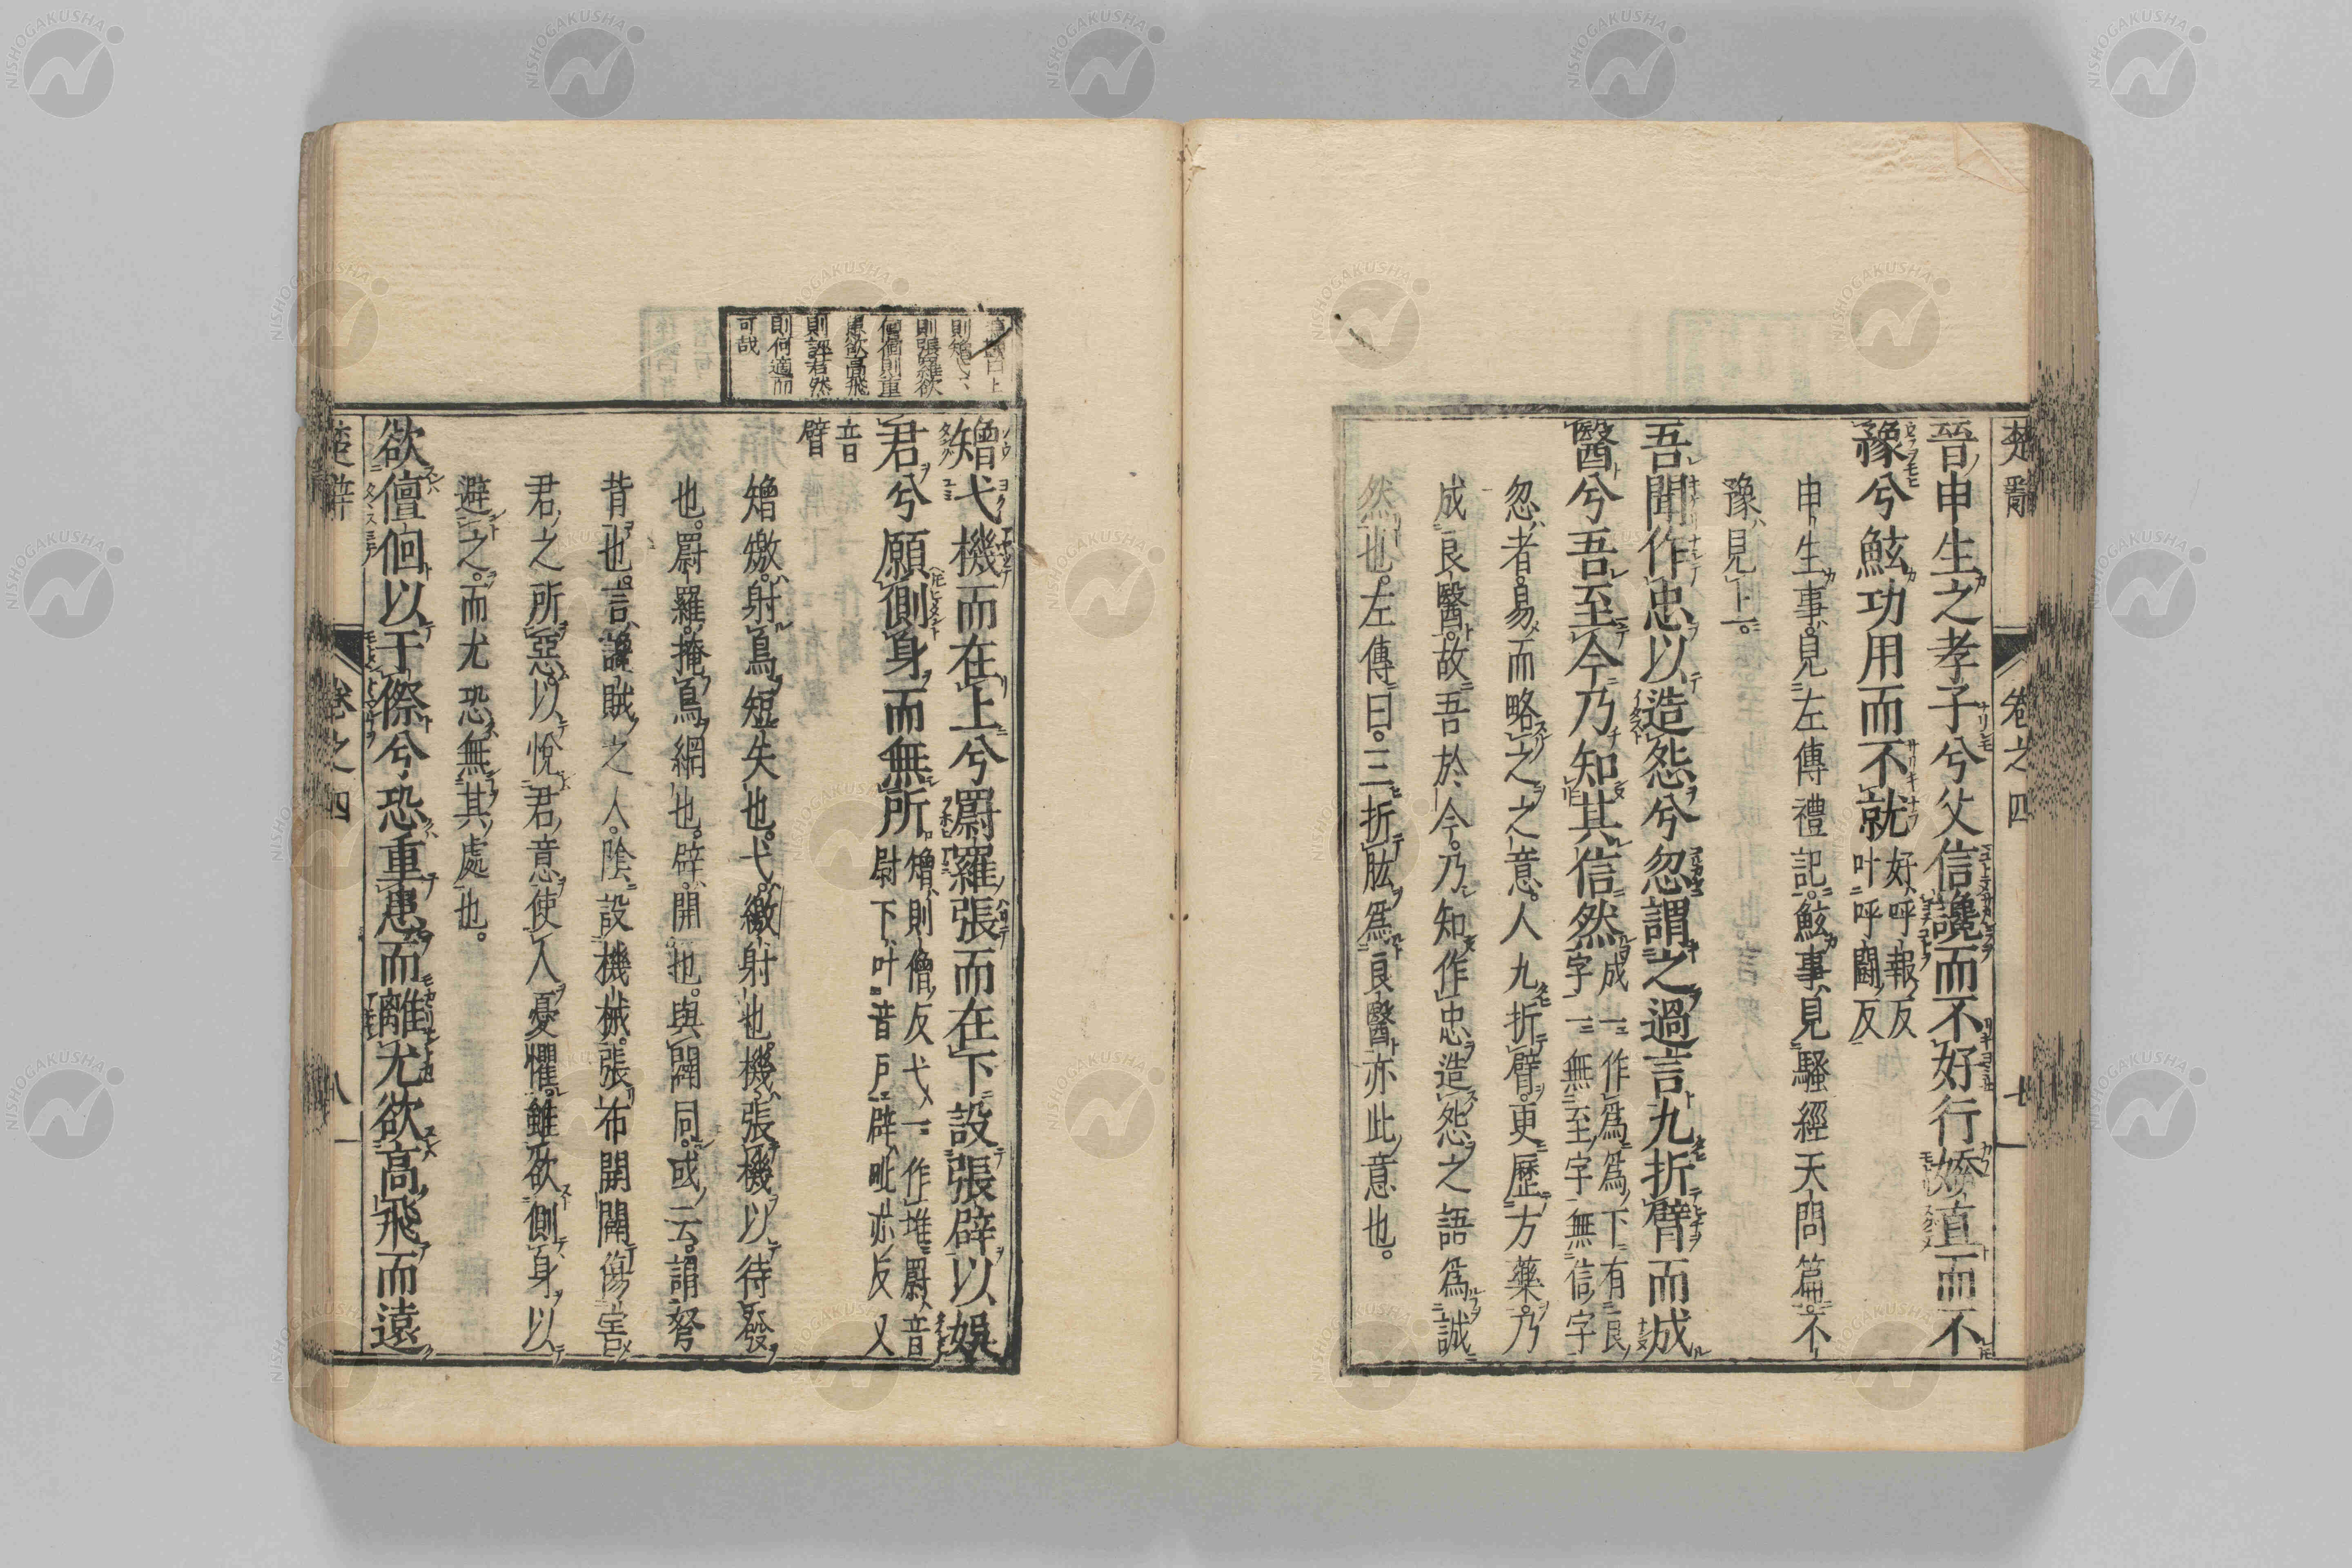 楚辭 卷之四 七
晉申生之孝子兮父信讒而不好行婞直而不
豫兮鮌功用而不就
好呼報反
叶呼鬪反
申生事見左傳禮記鮌事見騷經天問篇不
豫見上
吾聞作忠以造怨兮忽謂之過言九折臂而成
醫兮吾至今乃知其信然
成一作爲爲下有良
字一無至字一無信字
忽者易而略之之意人九折臂更歷方藥乃
成良醫故吾於今乃知作忠造怨之語爲誠
然也左傳曰三折肱爲良醫亦此意也
則矰弋
則張羅欲
儃佪則重
患欲高飛
則誣君然
則何適而
可哉
矰弋機而在上兮罻羅張而在下設張辟以娛
君兮願側身而無所
矰則僧反弋一作堆罻音
尉下叶音戶辟毗亦反又
音
臂
矰繳射鳥短矢也弋繳射也機張機以待發
也罻羅掩鳥網也辟開也與闢同或云謂弩
背也言讒賊之人陰設機械張布開闢傷害
君之所惡以悅君意使人憂懼雖欲側身以
避之而尤恐無其處也
欲儃佪以干傺兮恐重患而離尤欲高飛而遠
楚辭 卷之四 八
NISHOGAKUSHA